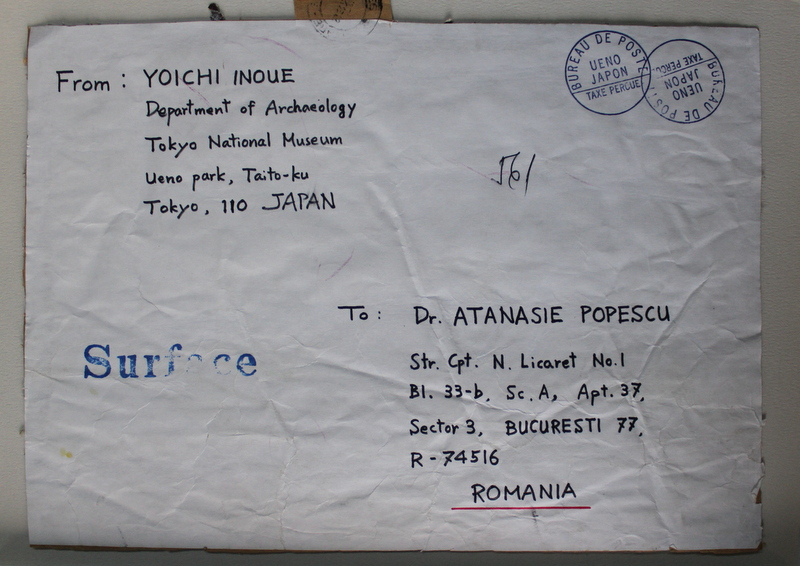 From: YOICHI INOUE
Department of Archaeology
Tokyo National Museum
Ueno park, Taito-ku
Tokyo, 110 JAPAN
BUREAU DE POSTE
UENO
JAPON
TAXE PERCUE
BUREAU DE POSTE
UENO
JAPON
TAXE PERCU
561
To: Dr. ATANASIE POPESCU
Str. Cpt. N. Licaret No.1
Bl. 33-b, Sc. A, Apt. 37,
Sector 3, BUCURESTI 77,
R-74516
ROMANIA
Surface